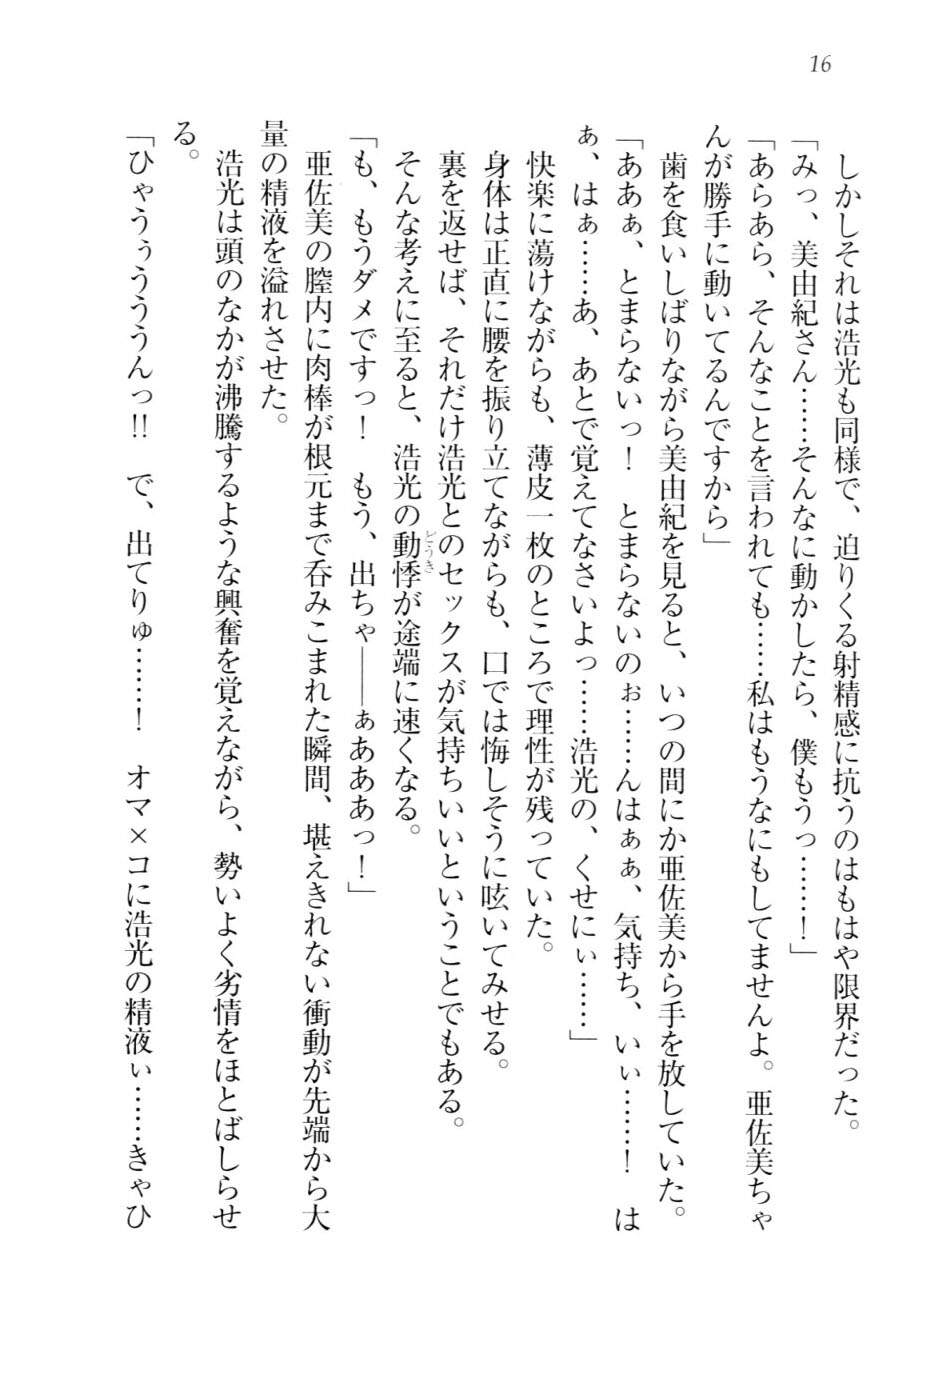 16
しかしそれは浩光も同様で、迫りくる射精感に抗うのはもはや限界だった。
「みっ、美由紀さん……そんなに動かしたら、僕もうっ……！」
「あらあら、そんなことを言われても……私はもうなにもしてませんよ。亜佐美ちゃ
んが勝手に動いてるんですから」
歯を食いしばりながら美由紀を見ると、いつの間にか亜佐美から手を放していた。
「ああぁ、とまらないっ！　とまらないのぉ……んはぁぁ、気持ち、いぃ……！　は
ぁ、はぁ……あ、あとで覚えてなさいよっ……浩光の、くせにぃ……」
快楽に蕩けながらも、薄皮一枚のところで理性が残っていた。
身体は正直に腰を振り立てながらも、口では悔しそうに呟いてみせる。
裏を返せば、それだけ浩光とのセックスが気持ちいいということでもある。
そんな考えに至ると、浩光の動悸どうきが途端に速くなる。
「も、もうダメですっ！　もう、出ちゃ――ぁあああっ！」
亜佐美の膣内に肉棒が根元まで呑みこまれた瞬間、堪えきれない衝動が先端から大
量の精液を溢れさせた。
浩光は頭のなかが沸騰するような興奮を覚えながら、勢いよく劣情をほとばしらせ
る。
「ひゃうぅうううんっ!!　で、出てりゅ……！　オマ×コに浩光の精液ぃ……きゃひ